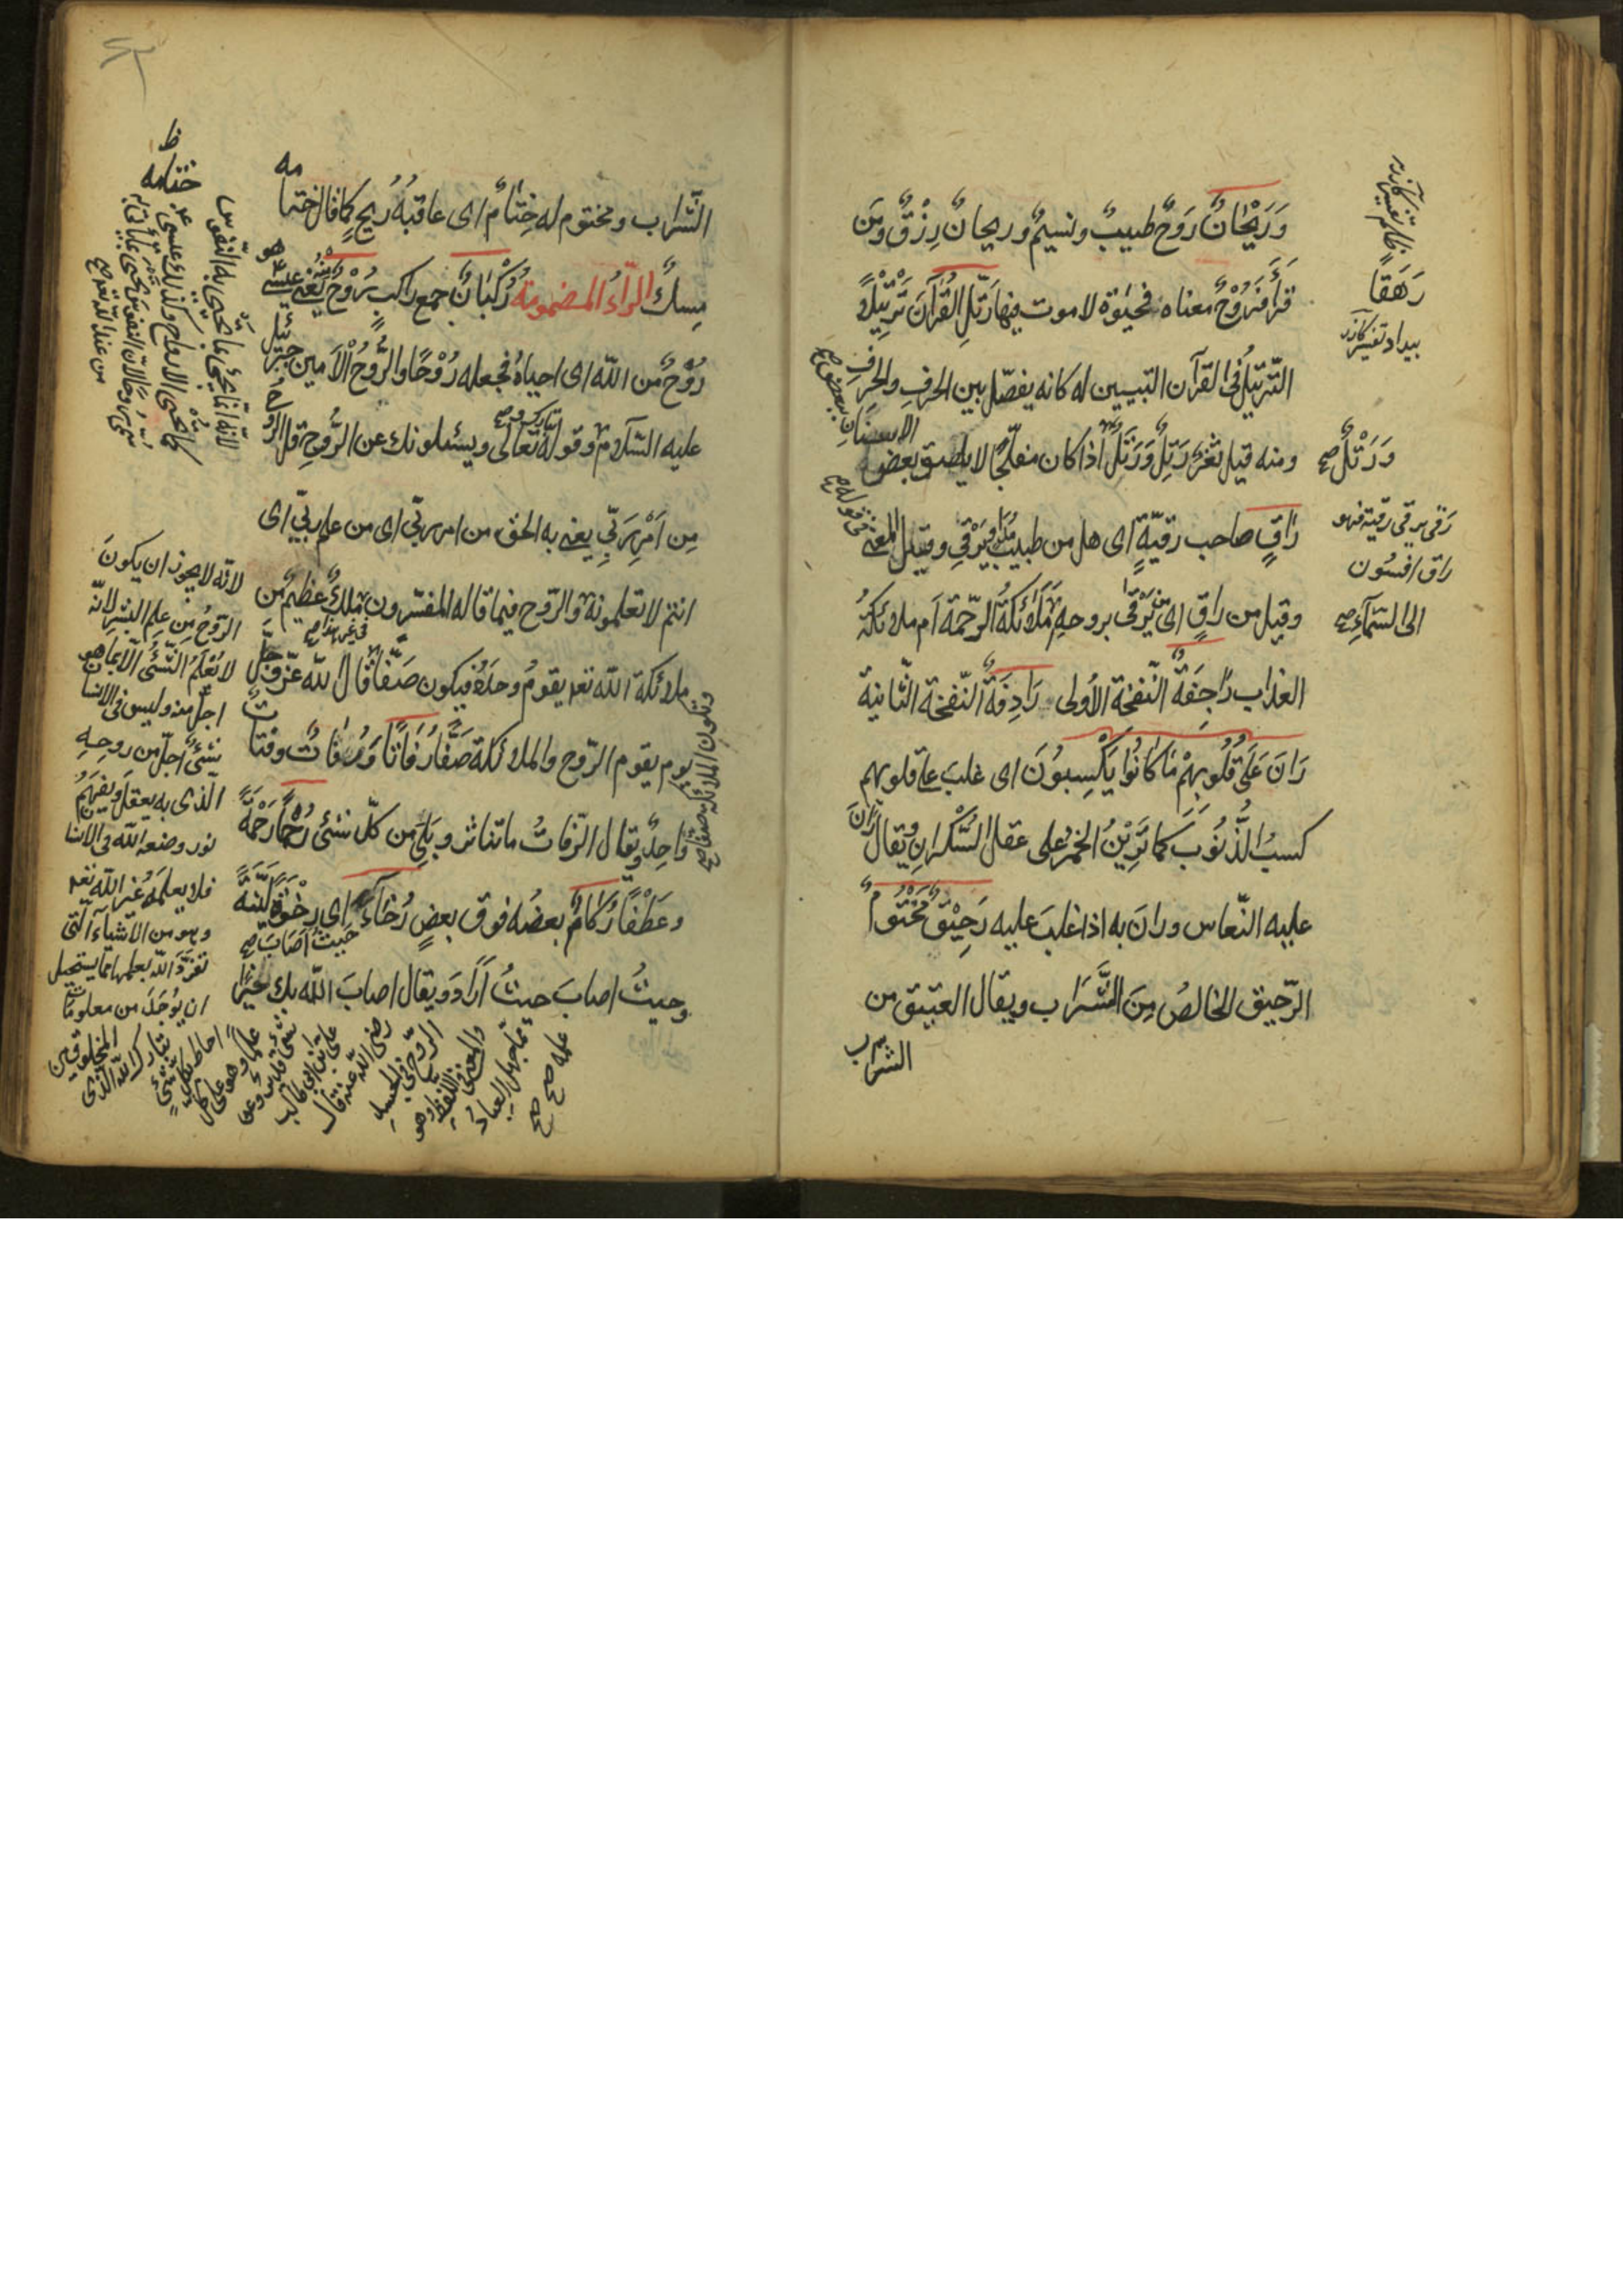 وَرَيْحَانٌ رَوْحٌ طيبٌ ونسيمٌ وريحانٌ رِزْقٌ ومَن
قرأَ فَرُوْحٌ معناه فحيٰوة لا موت فيها رَتِّلِ الْقُرْآنَ تَرْتِيْلًا
الترتيلُ في القرآن التبيين له كانه يفصّل بين الحرفِ والحرفِ
ومنه قيل ثغرٌ رَتِلٌ وَرَتَلٌ اذا كان مفلّجًا لا يلصق بعض
الاسنان
ببعض صح
وَرَتْلٌ صح
رَاقٍ صاحب رقيّة اى هل من طبيب يَرْقِى وقيل المعنى
وقيل من راقٍ اى مَن يَرْقىٰ بروحهِ مَلَائكةُ الرّحمة اَم ملائكةُ
العذاب رَاجِفَةٌ النّفخة الأولى رَادِفَةٌ النّفخة الثّانية
رَانَ عَلَىٰ قُلُوبِهِمْ مَا كَانُوا يَكْسِبُونَ اى غلبَ على قلوبهم
كسبُ الذُّنُوبِ كما تَرِيْنُ الخمرُ على عقل السَّكْرانِ ويقال رَانَ
عليه النّعاس ورانَ به اذا غلبَ عليه رَحِيْقٌ مَخْتُوْمٌ
الرّحيق الخالصُ مِنَ الشَّرَاب ويقال العتيق من
الشراب
رَهَقًا
رَقى يرقى رقية فهو
راق افسون
الى السَّمَآءِ صح
الشَّراب ومختوم له خِتَامٌ اى عاقبةُ رُيحٍ كما قال ختامه
مِسكٌ الرَّاءُ المضمومة رُكْبَانٌ جمع راكب رُوْحٌ مِنْهُ يعنى عيسى
رُوْحٌ من الله اى احياهُ فجعله رُوْحًا والرُّوحُ الْأَمين جبرئيلُ
عليه السّلام وقولهُ تبارك وتعالى ويسئلونك عن الرُّوحِ قل الروحُ
مِن اَمْرِ رَبِّى يعنى به الحق من امر ربّى اى من علم ربّى اى
انتم لا تعلمونهُ والرّوح فيما قاله المفسّرون ملكٌ عظيمٌ من
ملائكة الله تعـ يقومُ وحدهُ فيكون صَفًّا قال الله عزّ وجلّ
يوم يقوم الرّوح والملائكة صَفًّا رُفَاتًا وَرُفَاتٌ وفتاتٌ
وَاحِدٌ ويقال الرّفاتُ ما تناثر وبَلِىَ من كلّ شئٍ رُحْمًا رَحْمَةً
وعَطْفًا رُكَامٌ بعضُه فوق بعضٍ رُخَآءً اى رِخْوَةً لَيِّنَةً
حَيثُ اَصَابَ صح
وحيثُ اصابَ حيثُ اَرَادَ ويقال اصابَ الله بك خيرًا
وتكون الملائكة صفًّا صح
ظ
ختامه
لانّه لا يجوز ان يكونَ
الرّوحُ مِن علِم البشرِ لانّه
لا يُعْلَمُ الشَّئُ الّا بما هو
اجلّ منه وليس فى الانسان
شئٌ اجلّ من روحِهِ
الّذى به يعقل ويفهم
نور وضعهُ الله فى الانسان
فلا يعلمهُ غير الله تعـ
وهو من الاشيآء الّتى
تفرّدَ الله بعلمها ممّا يستحيل
ان يُوجَدَ من معلومات
المخلوقين
تبارك الله الّذى
احاط بكلّ شئٍ
علمًا وهو على كلّ
شئٍ قديرٌ وعن
علىّ بن ابى طالب
رضى الله عنه قال
الرّوح فى الجسدِ
علمه صح صح